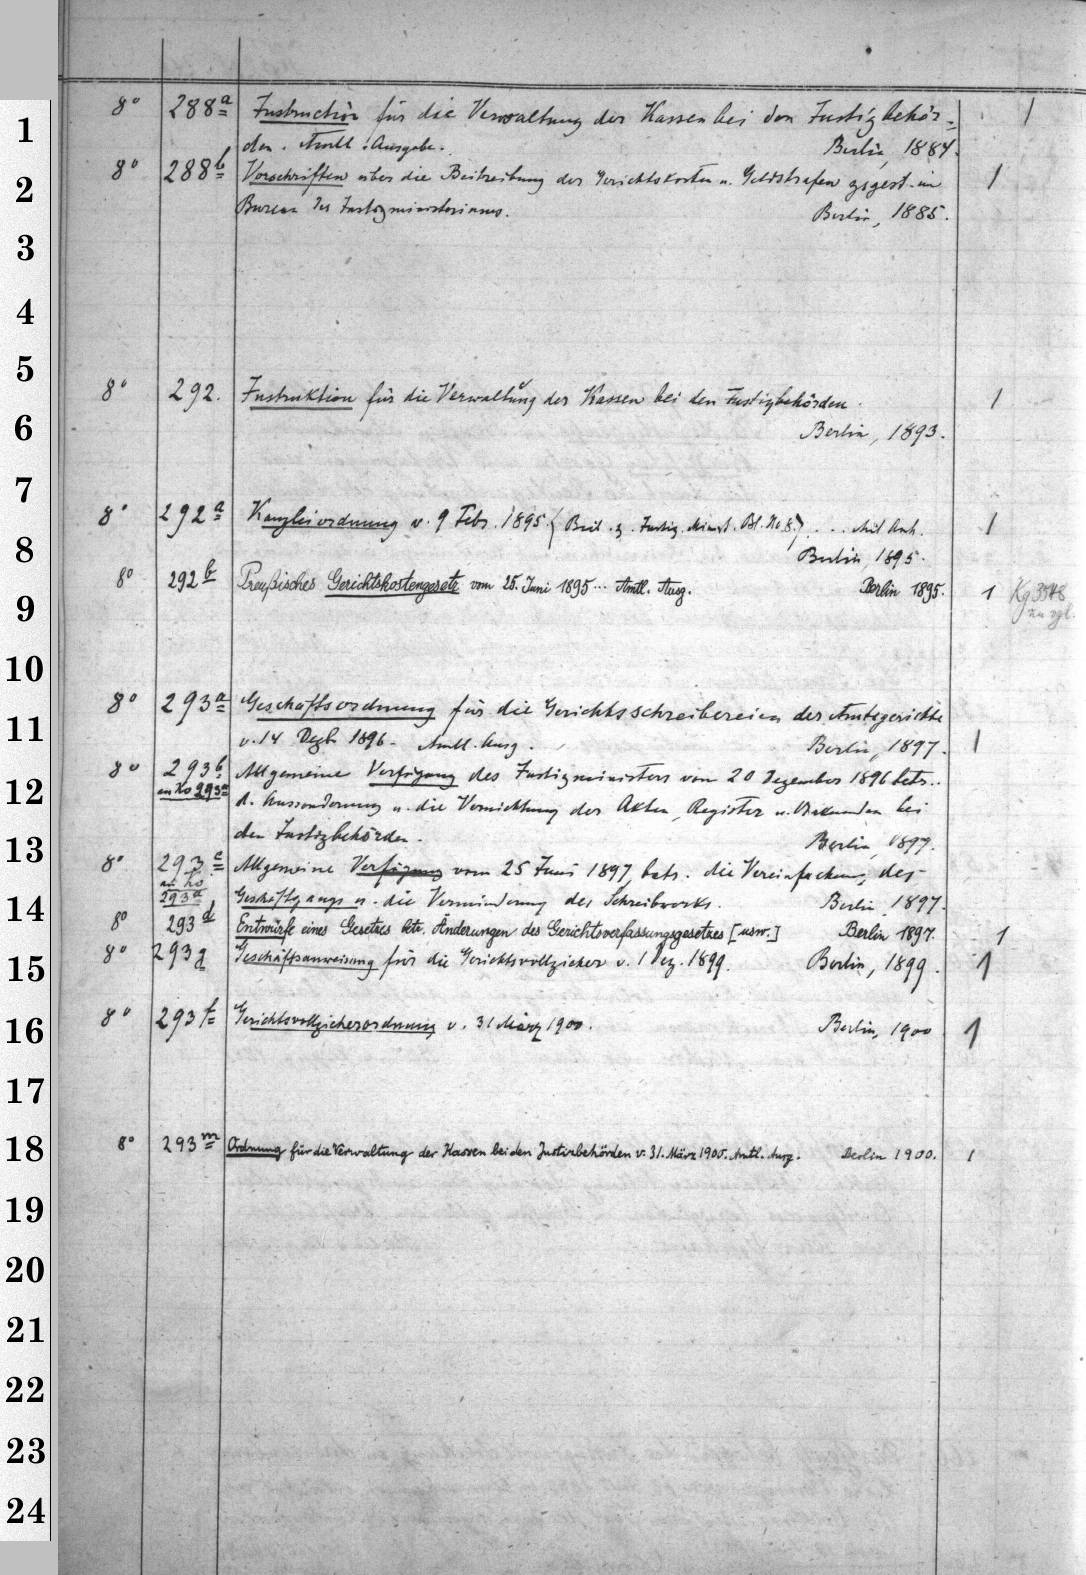 8° 288a Instruction für die Verwaltung der Kassen bei den Justizbehör- 1
den. Amtl. Ausgabe. Berlin, 1884.
8° 288b Vorschriften über die Beitreibung der Gerichtskosten u. Geldstrafen zsgest. im 1
Bureau des Justizministeriums. Berlin, 1885.
8° 292. Instruktion für die Verwaltung der Kassen bei den Justizbehörden. 1
Berlin, 1893.
8° 292a Kanzleiordnung v. 9 Febr. 1895. (Beil. z. Justiz. Minist. Bl. No 8.) ... Mit Anh. 1
Berlin, 1895.
8° 292b Preußisches Gerichtskostengesetz vom 25. Juni 1895 ... Amtl. Ausg. Berlin 1895. 1 Kg 3548
zu vgl.
8° 293a Geschäftsordnung für die Gerichtsschreibereien der Amtsgerichte
v. 14 Dezb. 1896. Amtl. Ausg. Berlin, 1897. 1
8° 293b Allgemeine Verfügung des Justizministers vom 20 Dezember 1896 betr.
an No 293a d. Aussonderung u. die Vernichtung der Akten, Register u. Urkunden bei
den Justizbehörden. Berlin, 1897.
8° 293c Allgemeine Verfügung vom 25 Juni 1897, betr. die Vereinfachung des
an No 293a Geschäftgangs u. die Verminderung des Schreibwerks. Berlin, 1897.
8° 293d Entwürfe eines Gesetzes betr. Änderungen des Gerichtsverfassungsgesetzes [usw.] Berlin 1897. 1
8° 293g Geschäftsanweisung für die Gerichtsvollzieher v. 1 Dez. 1899. Berlin, 1899. 1
8° 293f Gerichtsvollzieherordnung v. 31 März 1900. Berlin, 1900 1
8° 293m Ordnung für die Verwaltung der Kassen bei den Justizbehörden v. 31. März 1900. Amtl. Ausg. Berlin 1900. 1
1
2
3
4
5
6
7
8
9
10
11
12
13
14
15
16
17
18
19
20
21
22
23
24